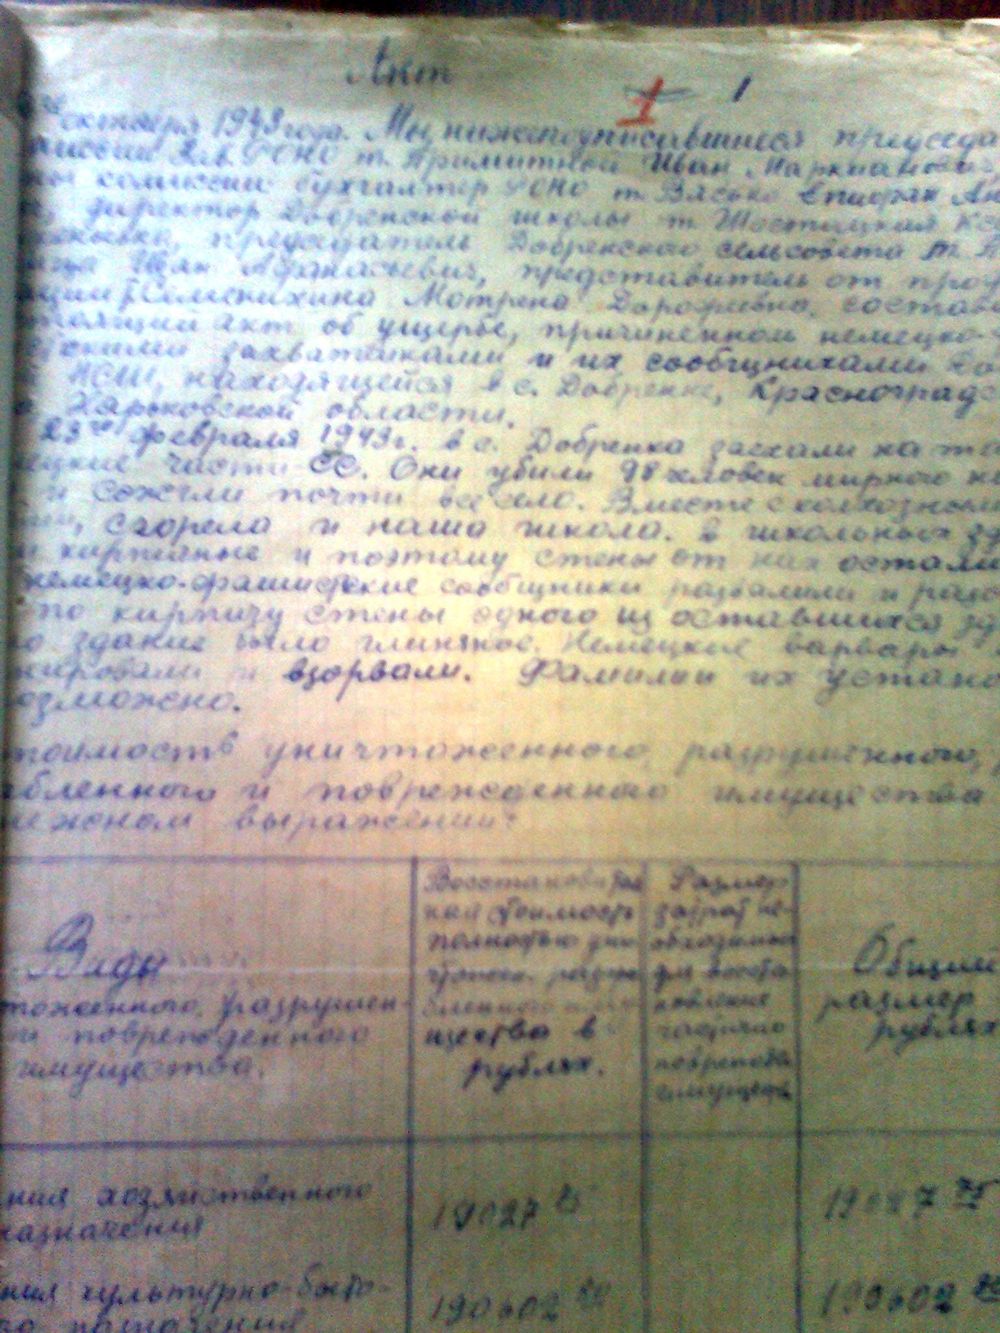 Акт
1 1
октября 1943 года. Мы нижеподписавшиеся председа
т. Иван Маркианович
комиссии бухгалтер РОНО т. Васько Епифан Ан
директор Добренской школы т.
председатель Добренского сельсовета т. П
Иван Афанасьевич, представитель от проф
Семенихина Мотрена Дорофеевна состав
тоящий акт об ущербе, причиненном немецко-
скими захватчиками и их сообщниками До
й НСШ, находящейся в с. Добренке, Красноградс
Харьковской области.
23го февраля 1943 г. в с. Добренка заехали на та
мецкие части СС. Они убили 98 человек мирного на
и сожгли почти все село. Вместе с колхозным
сгорела и наша школа. В школьных зд
кирпичные и поэтому стены от них остали
немецко-фашистские сообщники развалили и разо
по кирпичу стены одного из оставшихся зд
здание было глиняное. Немецкие варвары
нировали и взорвали. Фамилии их устано
озможно.
тоимость уничтоженного, разрушенного,
абленного и поврежденного имущества
нежном выражении:
Виды
тоженного, разрушен-
и поврежденного
имущества.
Восстановитель
ная стоимость
полностью уни
чтожен. разру
шенного иму
щества в
рублях.
Размер
затрат не-
обходимых
для восста
новления
частично
поврежден.
имуществ
Общий
размер
рублях
ния хозяйственного
назначения
19027 75
19027 75
ния культурно-быто-
го назначения
190602 50
190602 50